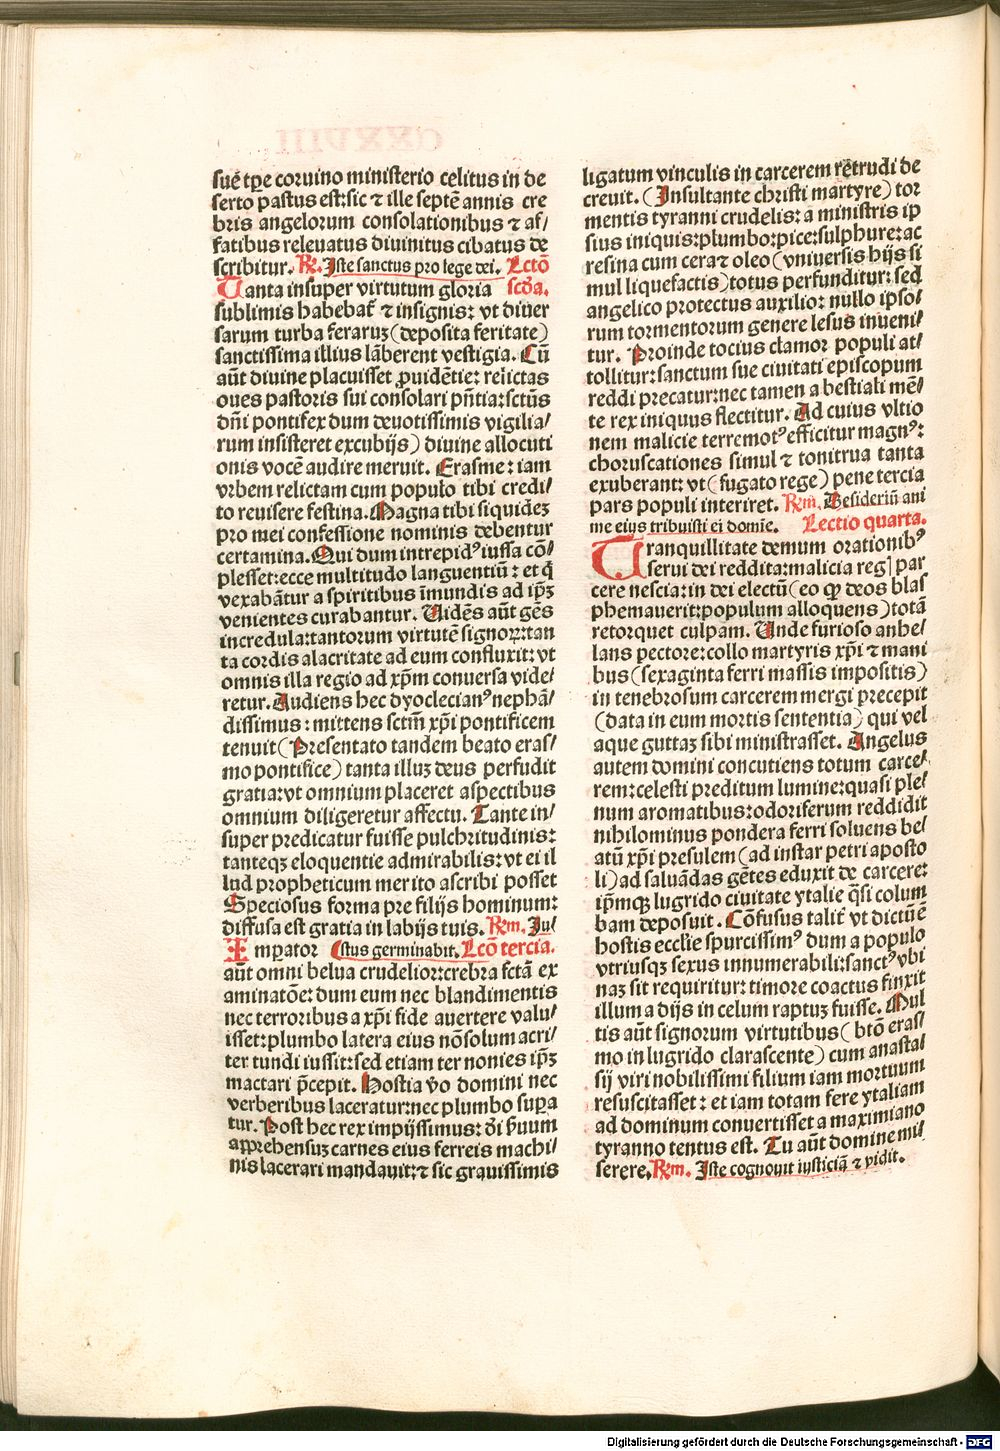 suẽ tꝑe coruino ministerio celitus in de
serto pastus est: sic ⁊ ille septẽ annis cre
bris angelorum consolationibus ⁊ af/
fatibus releuatus diuinitus cibatus de
scribitur. R̃. Iste sanctus pro lege dei. Lectõ
Tanta insuper virtutum gloria scða.
sublimis habebat̃ ⁊ insignis: vt diuer
sarum turba feraruꝫ (deposita feritate)
sanctissima illius lãberent vestigia. Cũ
aũt diuine placuisset ꝓuidẽtie: relictas
oues pastoris sui consolari pñtia: sctũs
dñi pontifex dum deuotissimis vigilia/
rum insisteret excubijs) diuine allocuti
onis vocẽ audire meruit. Erasme: iam
vrbem relictam cum populo tibi credi/
to reuisere festina. Magna tibi siquideꝫ
pro mei confessione nominis debentur
certamina. Qui dum intrepidꝰ iussa cõ/
plesset: ecce multitudo languentiũ: et q̃
vexabãtur a spiritibus ĩmundis ad ip̃ꝫ
venientes curabantur. Uidẽs aũt gẽs
incredula: tantorum virtutẽ signoꝝ: tan
ta cordis alacritate ad eum confluxit: vt
omnis illa regio ad xp̃m conuersa vide/
retur. Audiens hec dyoclecianꝰ nephã/
dissimus: mittens sctm̃ xp̃i pontificem
tenuit (Presentato tandem beato eras/
mo pontifice) tanta illuꝫ deus perfudit
gratia: vt omnium placeret aspectibus
omnium diligeretur affectu. Tante in/
super predicatur fuisse pulchritudinis:
tanteqꝫ eloquentie admirabilis: vt ei il
lud propheticum merito ascribi posset
Speciosus forma pre filijs hominum:
diffusa est gratia in labijs tuis. R̃m. Ju/
Imꝑator (stus germinabit. Lcõ tercia.
aũt omni belua crudelior: crebra fctã ex
aminatõe: dum eum nec blandimentis
nec terroribus a xp̃i fide auertere valu/
isset: plumbo latera eius nõ solum acri/
ter tundi iussit: sed etiam ter nonies ip̃ꝫ
mactari p̃cepit. Hostia ṽo domini nec
verberibus laceratur: nec plumbo supͣa
tur. Post hec rex impijssimus: ði ẜuum
apprehensuꝫ carnes eius ferreis machi/
nis lacerari mandauit: ⁊ sic grauissimis
ligatum vinculis in carcerem rẽtrudi de
creuit. (Insultante christi martyre) tor
mentis tyranni crudelis: a ministris ip
sius iniquis: plumbo: pice: sulphure: ac
resina cum cera ⁊ oleo (vniuersis hijs si
mul liquefactis) totus perfunditur: sed
angelico protectus auxilio: nullo ipso/
rum tormentorum genere lesus inueni/
tur. Proinde tocius clamor populi at/
tollitur: sanctum sue ciuitati episcopum
reddi precatur: nec tamen a bestiali mẽ/
te rex iniquus flectitur. Ad cuius vltio
nem malicie terremotꝰ efficitur magnꝰ:
choruscationes simul ⁊ tonitrua tanta
exuberant: vt (fugato rege) pene tercia
pars populi interiret. R̃m. Desideriũ ani
me eius tribuisti ei domĩe. Lectio quarta.
Tranquillitate demum orationibꝰ
serui dei reddita: malicia regꝭ par
cere nescia: in dei electũ (eo ꝙ deos blas
phemauerit: populum alloquens) totã
retorquet culpam. Unde furioso anhe/
lans pectore: collo martyris xp̃i ⁊ mani
bus (sexaginta ferri massis impositis)
in tenebrosum carcerem mergi precepit
(data in eum mortis sententia) qui vel
aque guttaꝫ sibi ministrasset. Angelus
autem domini concutiens totum carce/
rem: celesti preditum lumine: quasi ple/
num aromatibus: odoriferum reddidit
nihilominus pondera ferri soluens be/
atũ xp̃i presulem (ad instar petri aposto
li) ad saluãdas gẽtes eduxit de carcere:
ip̃mqꝫ lugrido ciuitate ytalie q̃si colum
bam deposuit. Cõfusus talit̃ vt dictũ ẽ
hostis ecclie spurcissimꝰ dum a populo
vtriusqꝫ sexus innumerabili: sanctꝰ vbi
naꝫ sit requiritur: timore coactus finxit
illum a dijs in celum raptuꝫ fuisse. Mul
tis aũt signorum virtutibus (btõ eras/
mo in lugrido clarascente) cum anasta/
sij viri nobilissimi filium iam mortuum
resuscitasset: et iam totam fere ytaliam
ad dominum conuertisset a maximiano
tyranno tentus est. Tu aũt domine mi/
serere. R̃m. Iste cognouit iusticiã ⁊ vidit.
Digitalisierung gefördert durch die Deutsche Forschungsgemeinschaft - DFG